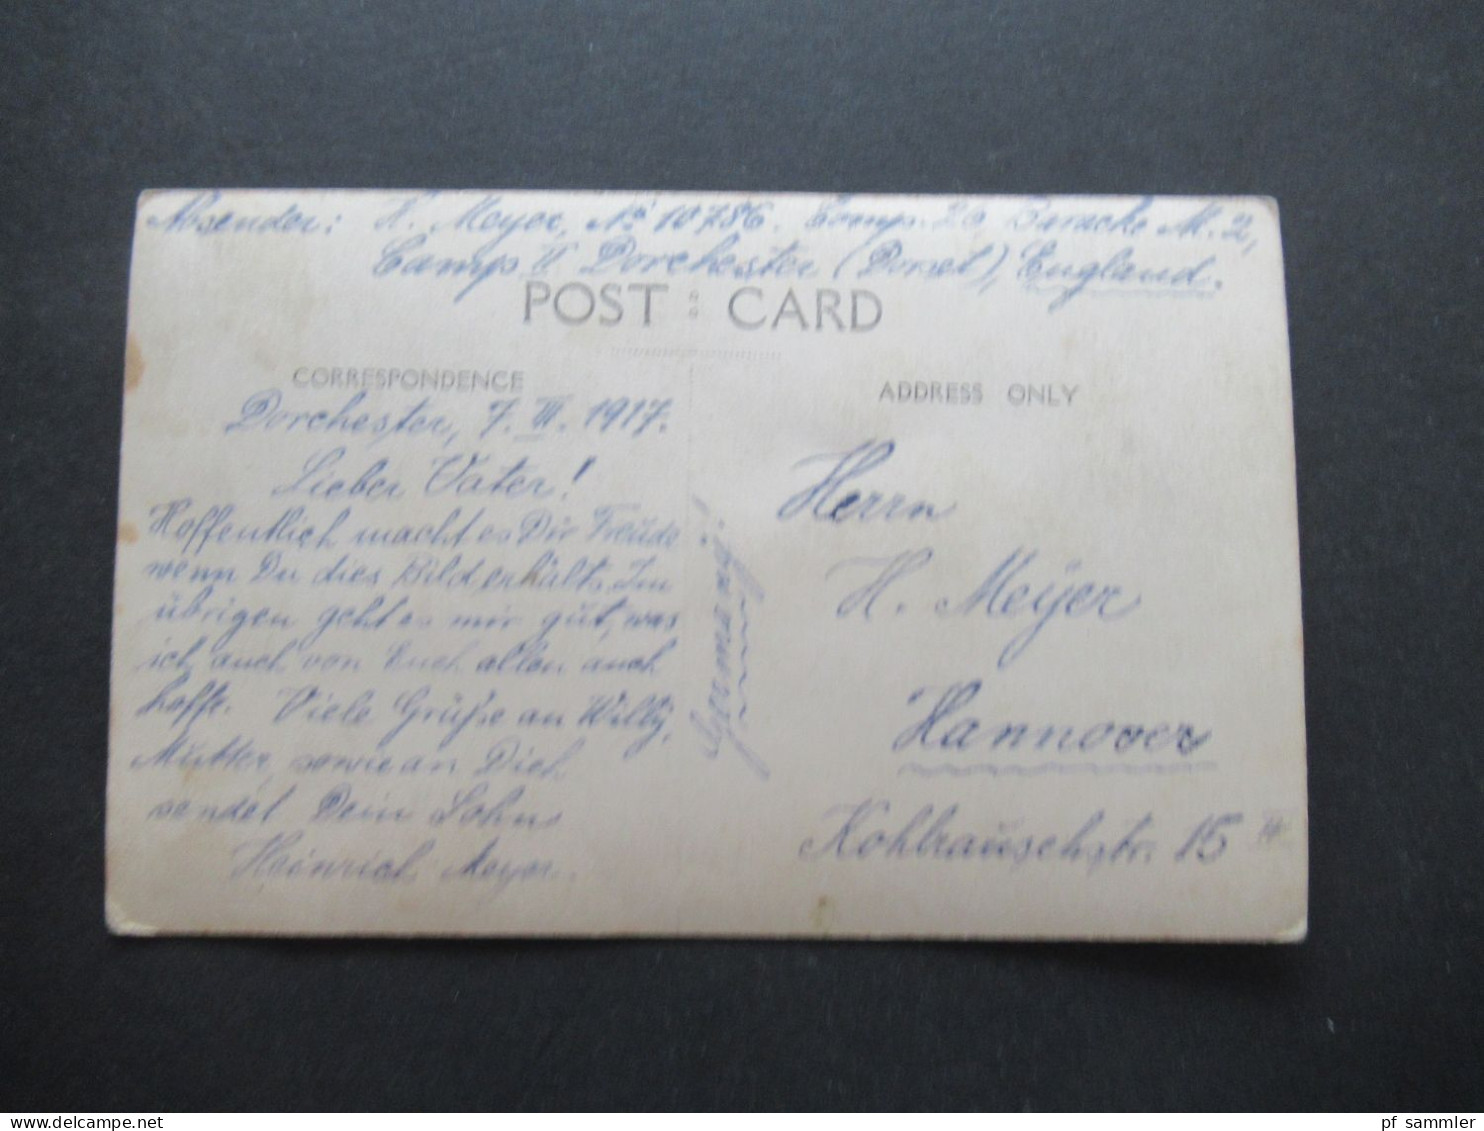 Absender: H. Meyer, No 10786. Comp. 26 Baracke M. 2,
Camp II Dorchester (Dorset), England.
POST : CARD
CORRESPONDENCE
Dorchester, 7. III. 1917.
Lieber Vater!
Hoffentlich macht es Dir Freude
wenn Du dies Bild erhälts. Im
übrigen geht es mir gut, was
ich auch von Euch allen auch
hoffe. Viele Grüße an Willÿ,
Mutter, sowie an Dich
sendet Dein Sohn
Heinrich Meyer.
ADDRESS ONLY
Herrn
H. Meÿer
Hannover
Kohlrauschstr. 15
Germany.
pf_sammler